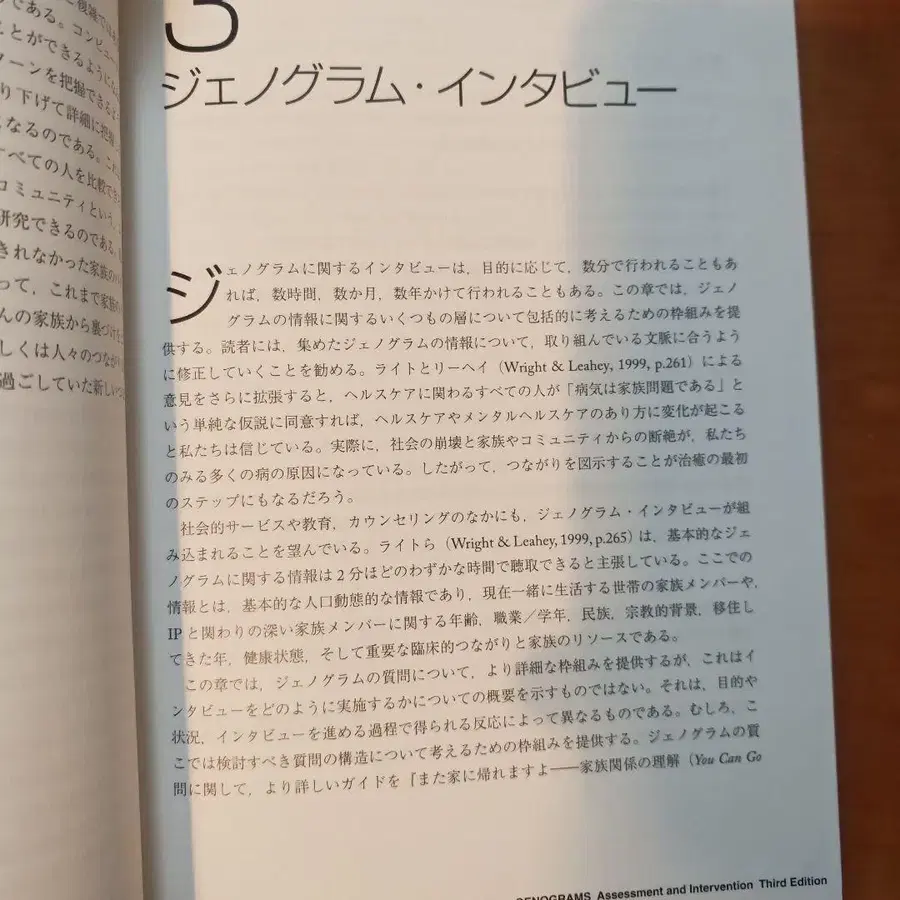 である。コンピュー
ことができるように
ターンを把握できる
り下げて詳細に把握
なるのである。
すべての人を比較でき
コミュニティという、
研究できるのである。
きれなかった家族の
って、これまで家族の
んの家族から裏づけを
しくは人々のつながり
過ごしていた新しい
3
ジェノグラム・インタビュー
ジェノグラムに関するインタビューは，目的に応じて，数分で行われることもあ
れば，数時間，数か月，数年かけて行われることもある。この章では，ジェノ
グラムの情報に関するいくつもの層について包括的に考えるための枠組みを提
供する。読者には，集めたジェノグラムの情報について，取り組んでいる文脈に合うよう
に修正していくことを勧める。ライトとリーヘイ（Wright & Leahey, 1999, p.261）による
意見をさらに拡張すると，ヘルスケアに関わるすべての人が「病気は家族問題である」と
いう単純な仮説に同意すれば，ヘルスケアやメンタルヘルスケアのあり方に変化が起こる
と私たちは信じている。実際に，社会の崩壊と家族やコミュニティからの断絶が，私たち
のみる多くの病の原因になっている。したがって，つながりを図示することが治癒の最初
のステップにもなるだろう。
社会的サービスや教育，カウンセリングのなかにも，ジェノグラム・インタビューが組
み込まれることを望んでいる。ライトら（Wright & Leahey, 1999, p.265）は，基本的なジェ
ノグラムに関する情報は2分ほどのわずかな時間で聴取できると主張している。ここでの
情報とは，基本的な人口動態的な情報であり，現在一緒に生活する世帯の家族メンバーや，
IPと関わりの深い家族メンバーに関する年齢，職業／学年，民族，宗教的背景，移住し
てきた年，健康状態，そして重要な臨床的つながりと家族のリソースである。
この章では，ジェノグラムの質問について，より詳細な枠組みを提供するが，これはイ
ンタビューをどのように実施するかについての概要を示すものではない。それは，目的や
状況，インタビューを進める過程で得られる反応によって異なるものである。むしろ，こ
こでは検討すべき質問の構造について考えるための枠組みを提供する。ジェノグラムの質
問に関して，より詳しいガイドを『また家に帰れますよ――家族関係の理解（You Can Go
GENOGRAMS Assessment and Intervention Third Edition